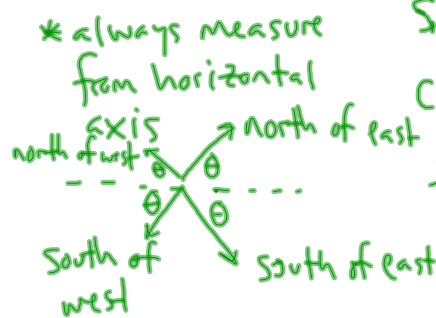 * always measure
from horizontal
axis
north of east
north of west
θ θ
θ θ
South of
west
south of east